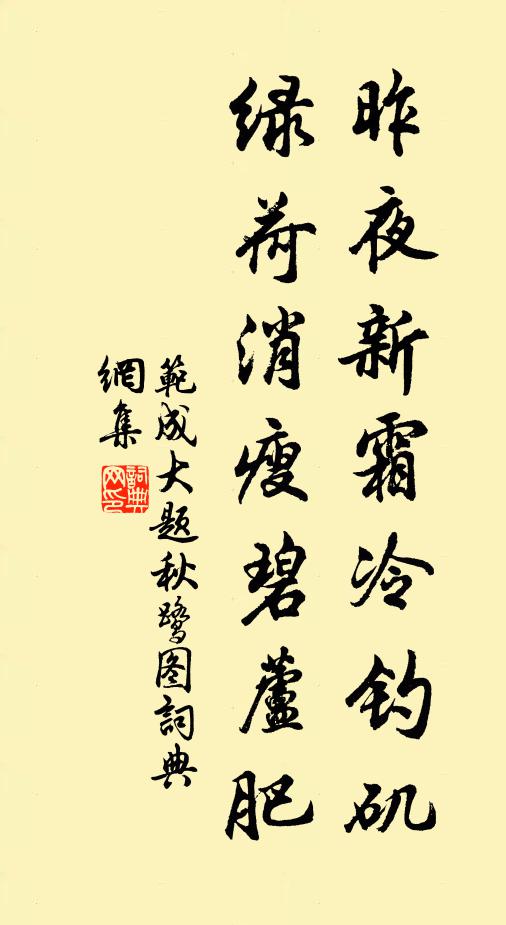 昨夜新霜冷钓矶
绿荷消瘦碧蘆肥
範成大题秋鹭图詞典
網集
詞典
网印